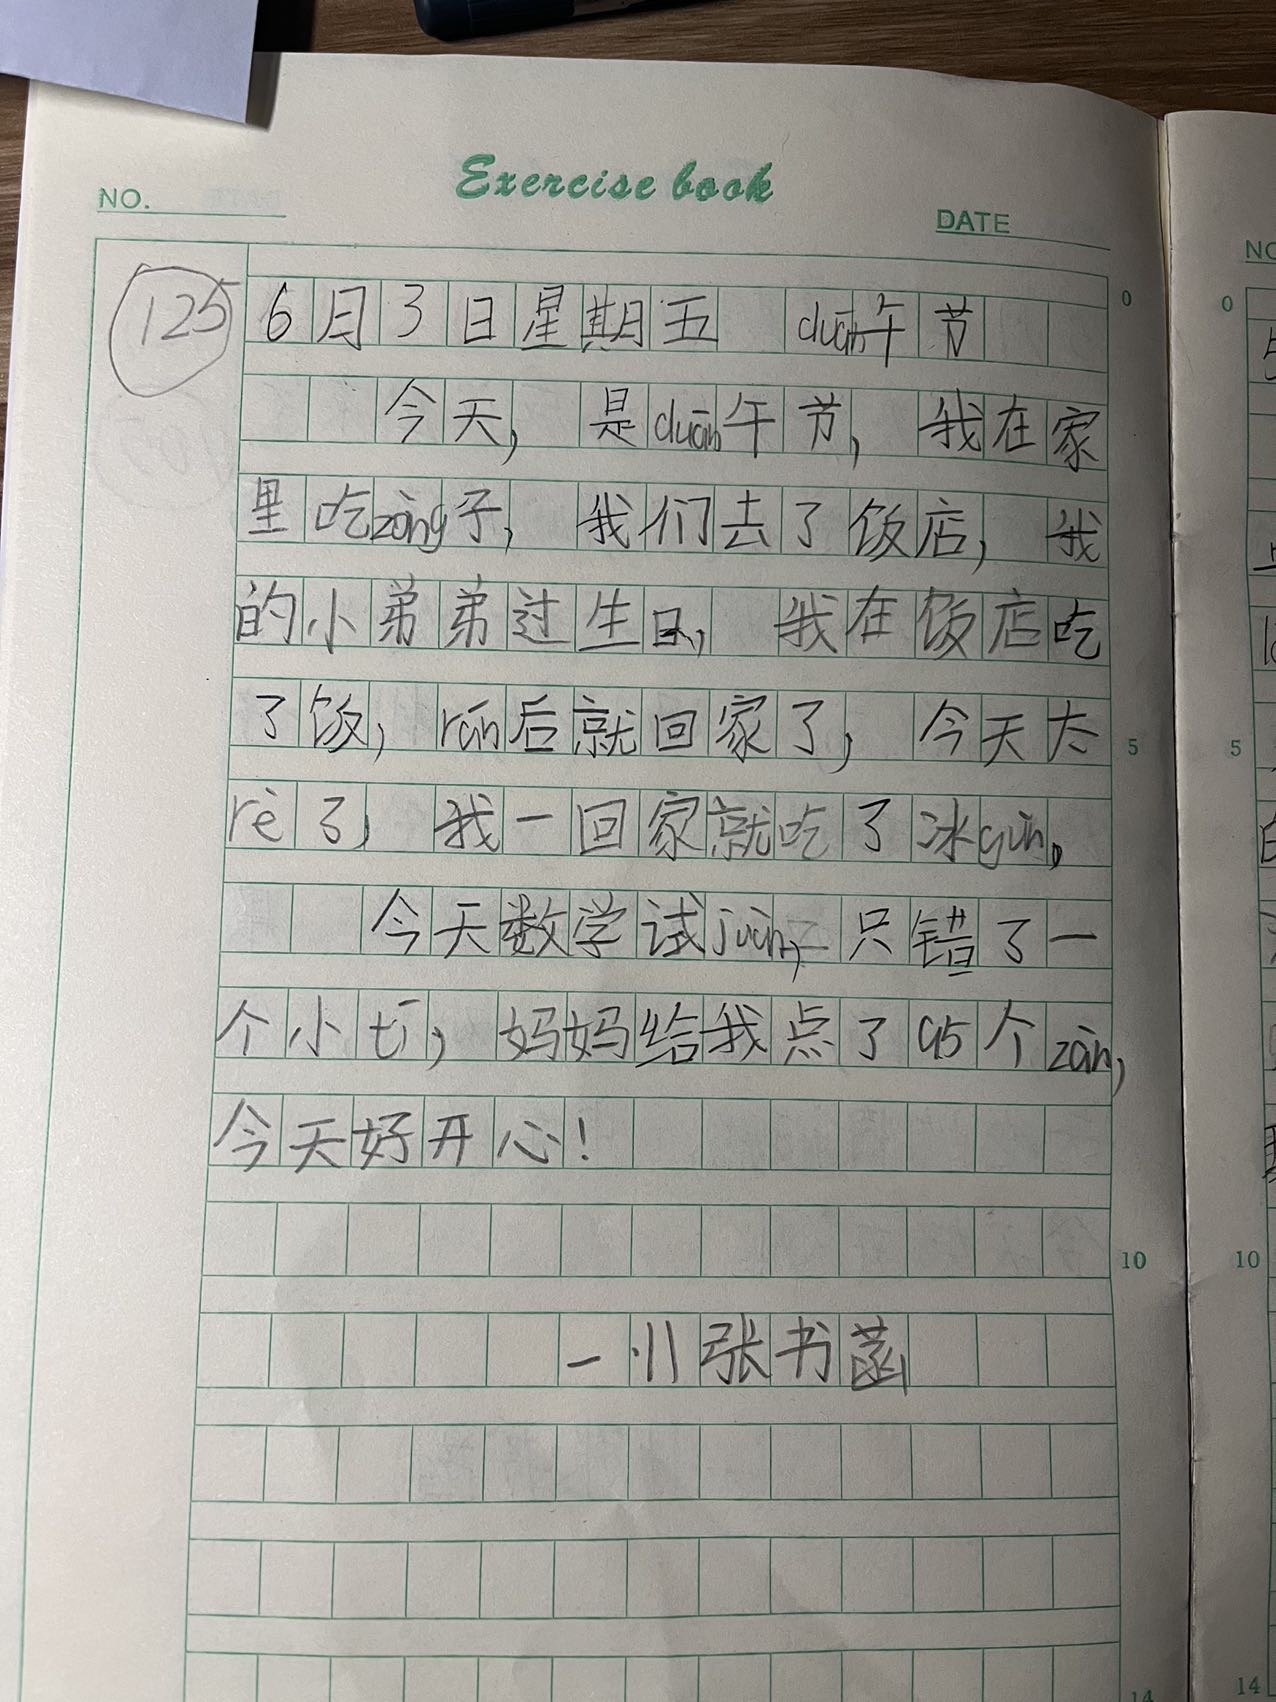 Exercise book
NO.
DATE
125
6月3日星期五 duān午节
今天,是duān午节,我在家
里吃zòng子,我们去了饭店,我
的小弟弟过生日,我在饭店吃
了饭,rán后就回家了,今天太
rè了,我一回家就吃了冰gùn。
今天数学试juàn,只错了一
个小tí,妈妈给我点了95个zàn,
今天好开心!
一.11张书菡
0
5
10
14
NO
0
5
10
14